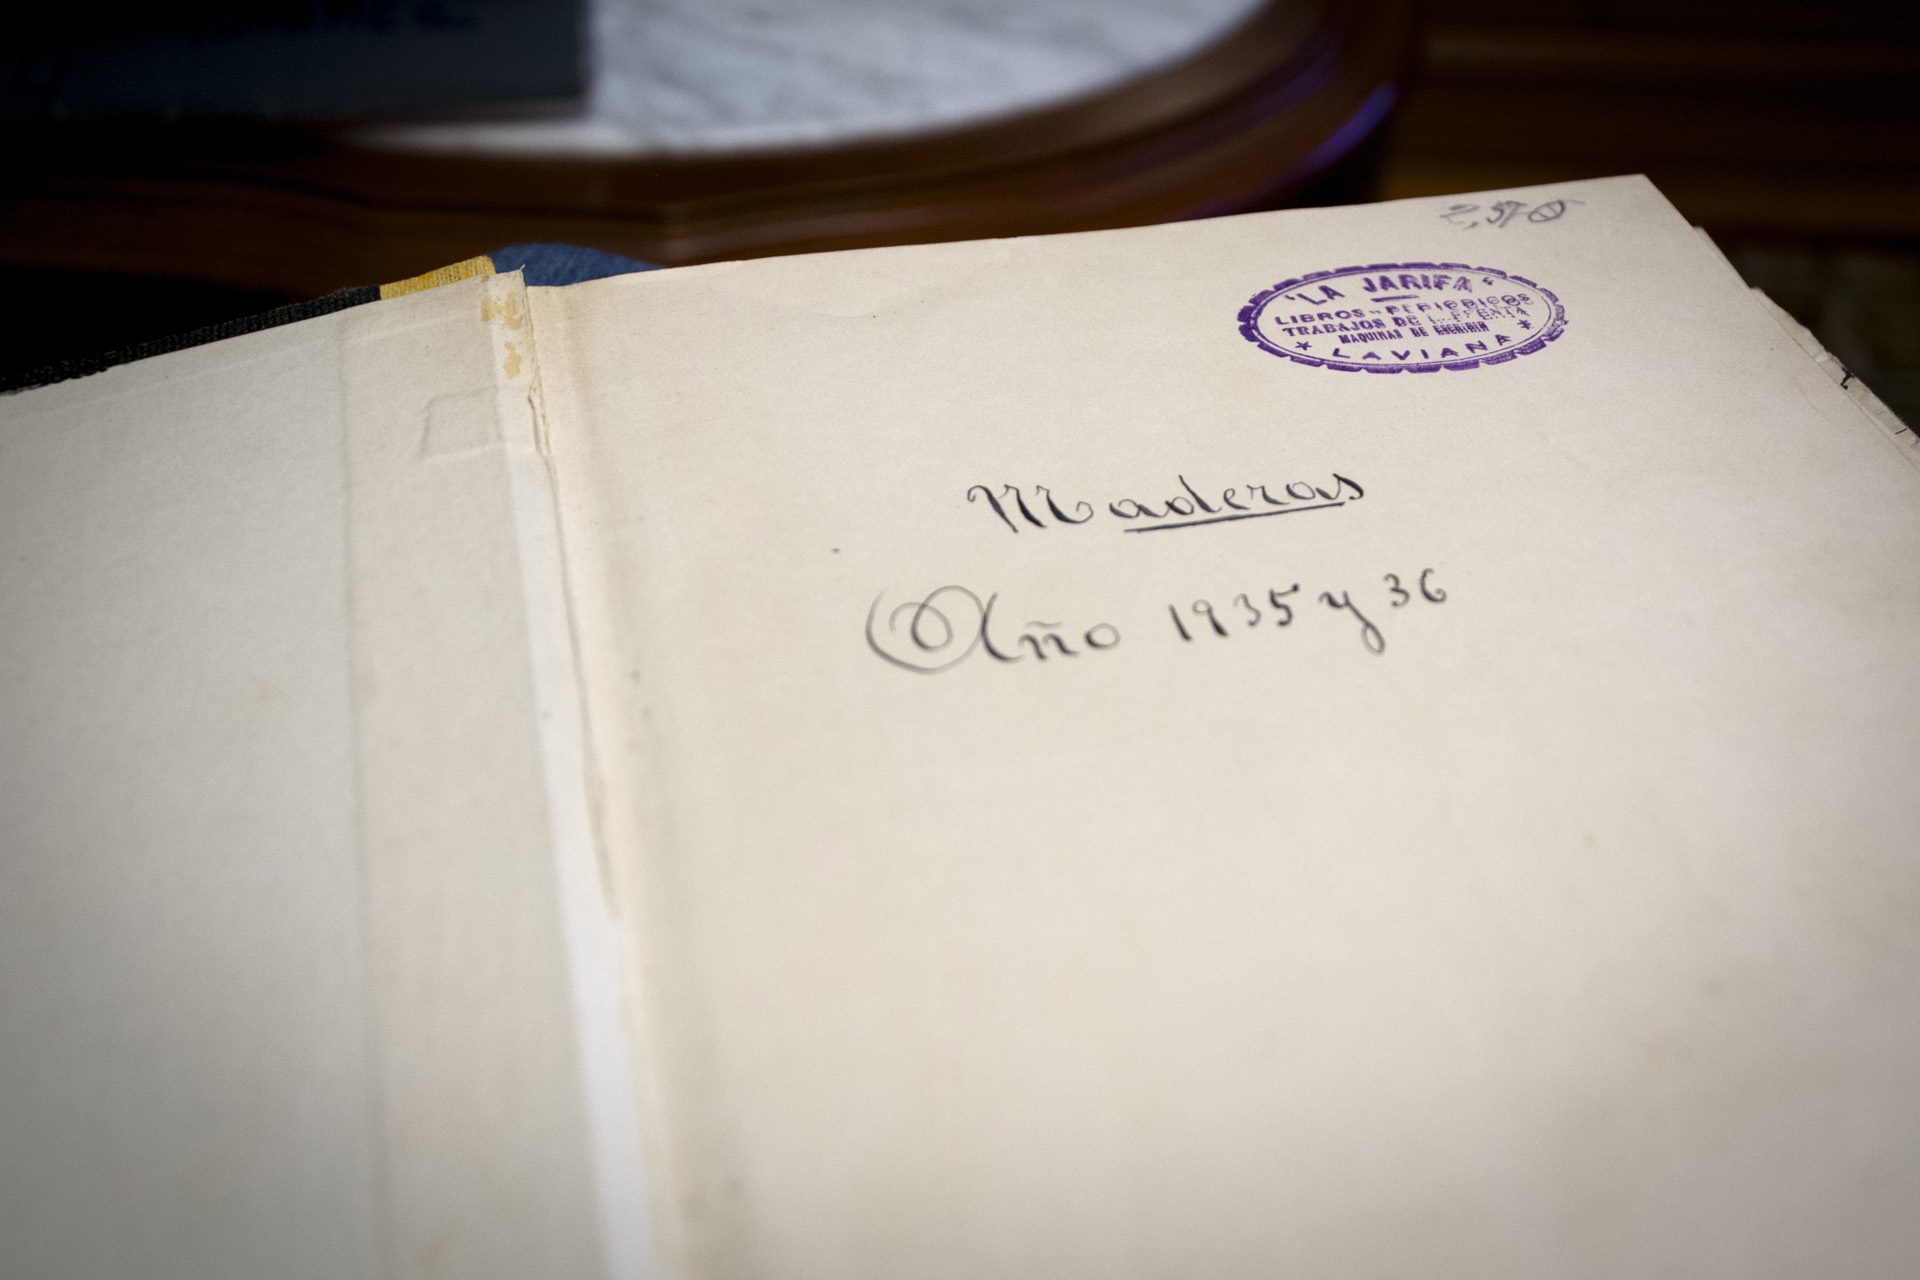 2,570
"LA JARIFA"
LIBROS - PERIODICOS
TRABAJOS DE IMPRENTA
MAQUINAS DE ESCRIBIR
LAVIANA
Maderas
Año 1935 y 36